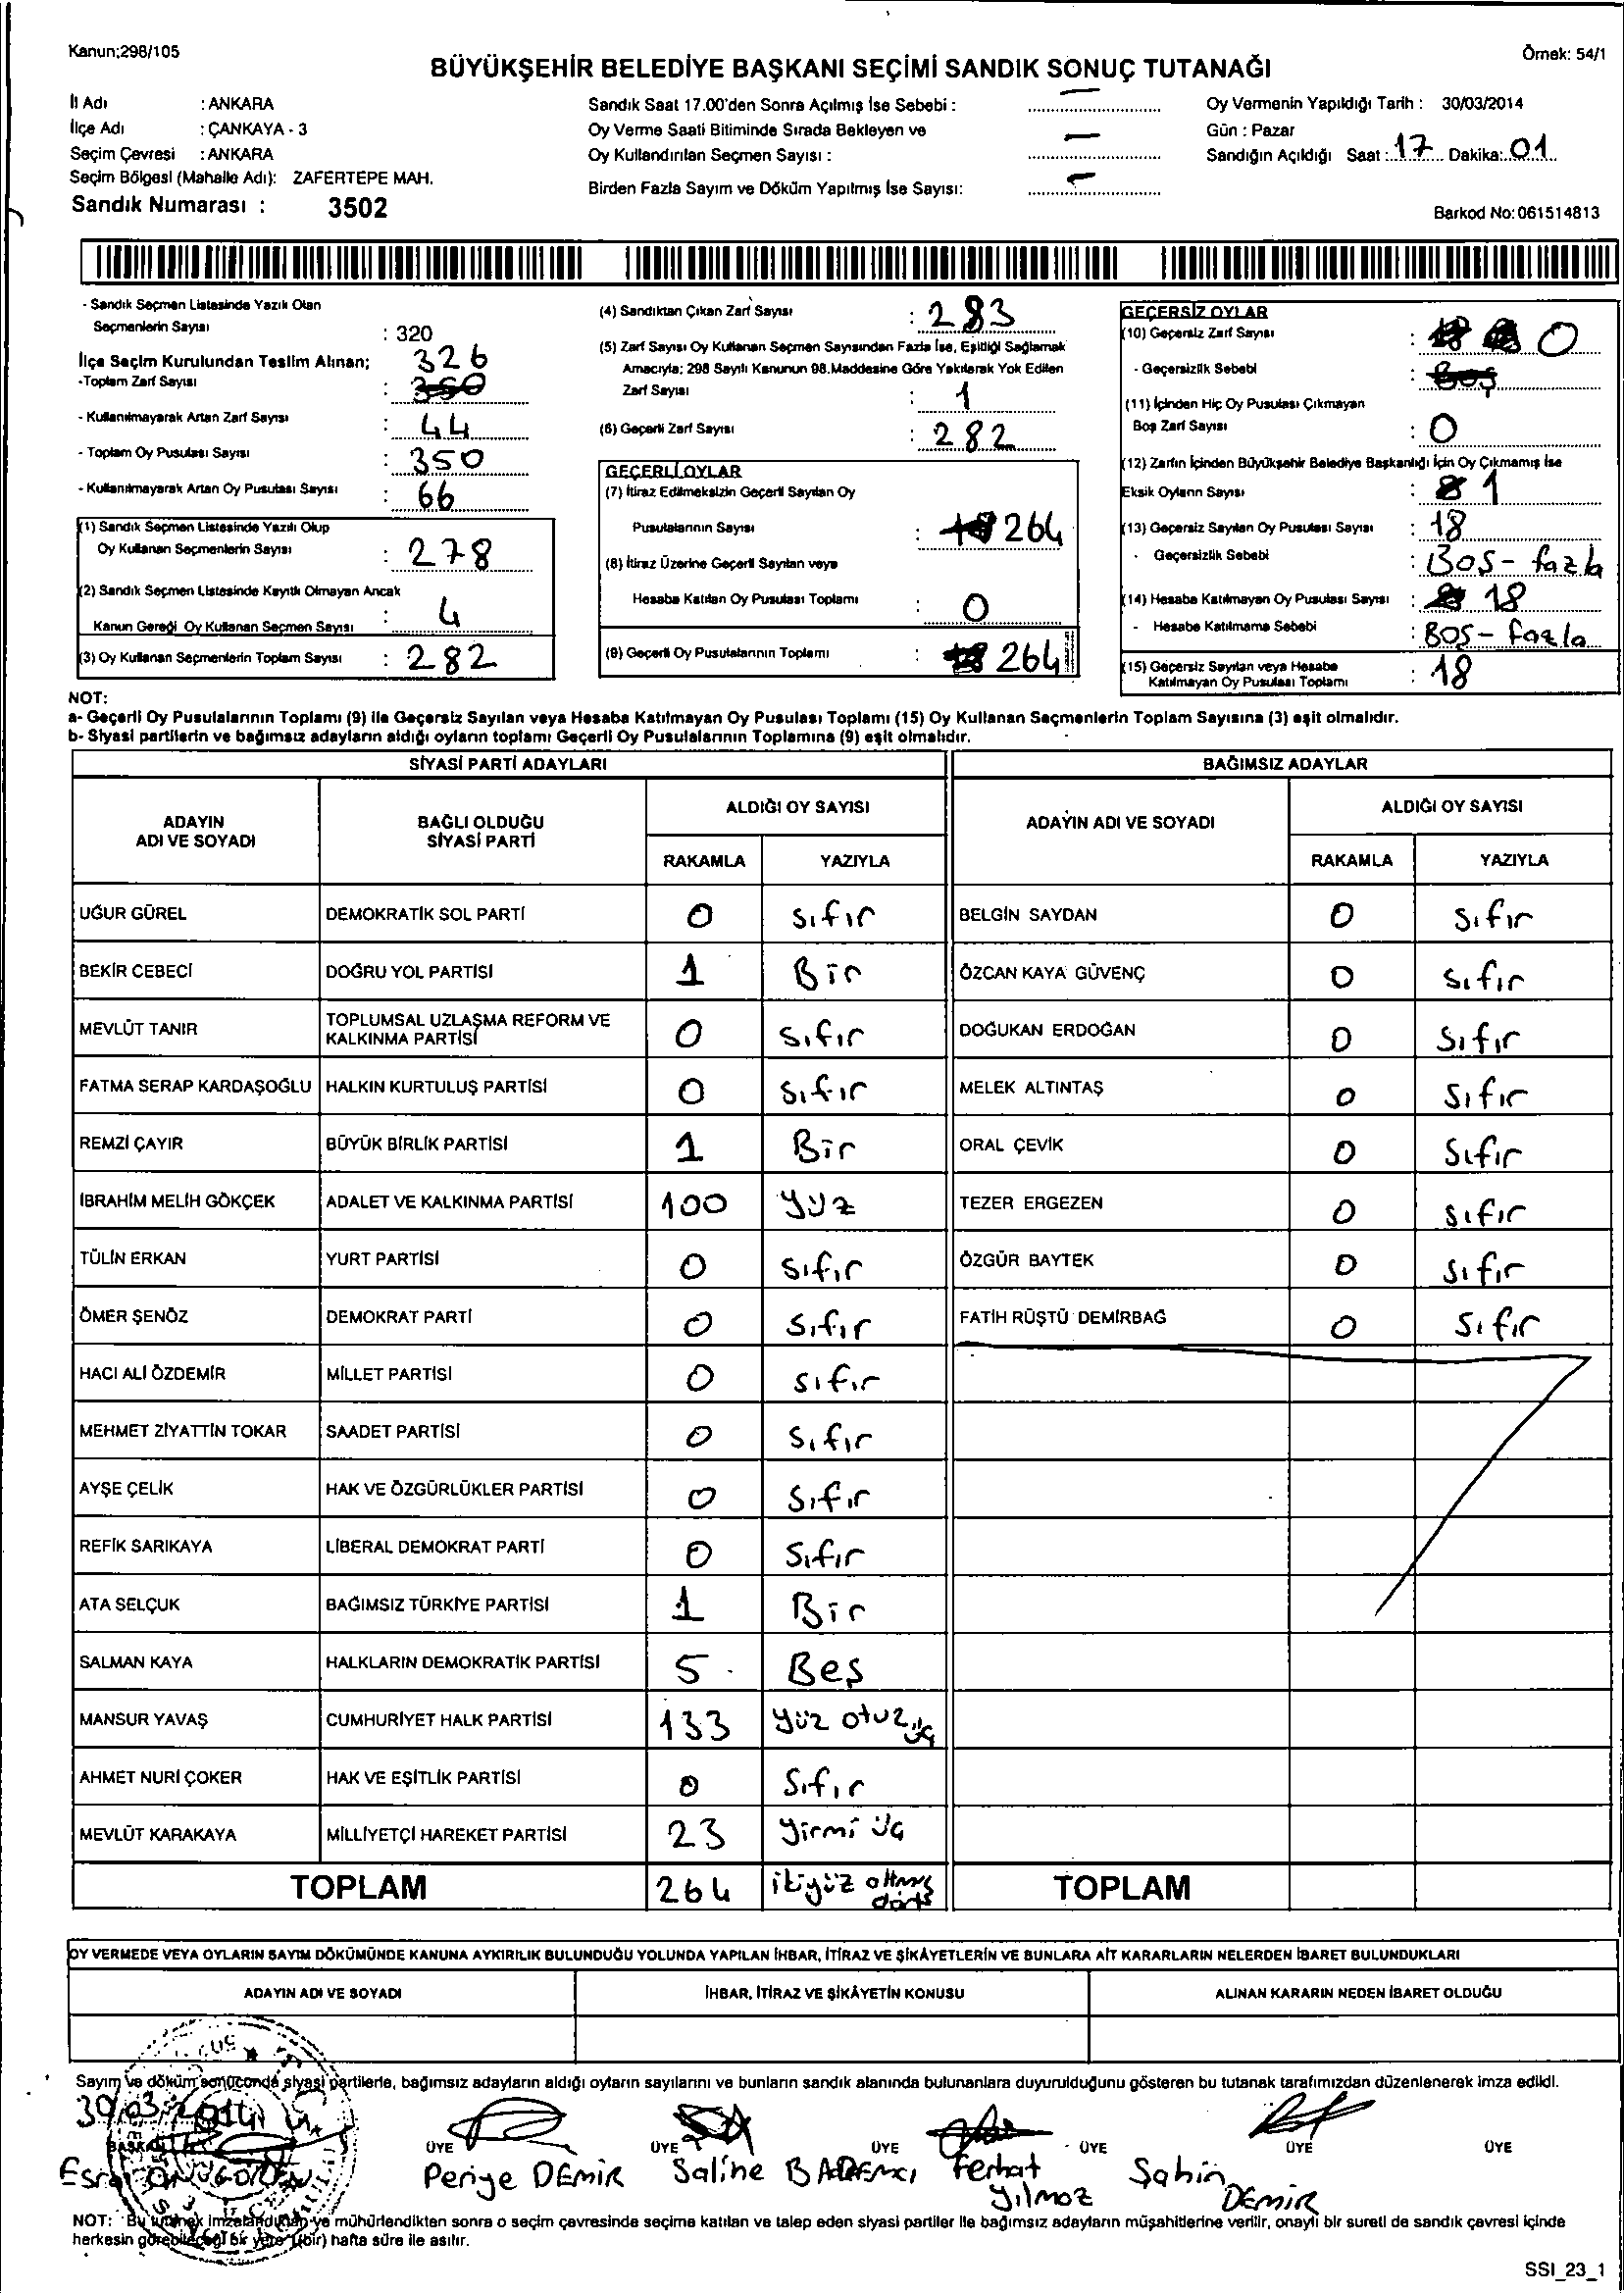 Kanun:298/105
Örnek: 54/1
BÜYÜKŞEHİR BELEDİYE BAŞKANI SEÇİMİ SANDIK SONUÇ TUTANAĞI
İl Adı : ANKARA
İlçe Adı : ÇANKAYA - 3
Seçim Çevresi : ANKARA
Seçim Bölgesi (Mahalle Adı): ZAFERTEPE MAH.
Sandık Numarası : 3502
Sandık Saat 17.00'den Sonra Açılmış İse Sebebi : —
Oy Verme Saati Bitiminde Sırada Bekleyen ve
Oy Kullandırılan Seçmen Sayısı : —
Birden Fazla Sayım ve Döküm Yapılmış İse Sayısı: —
Oy Vermenin Yapıldığı Tarih : 30/03/2014
Gün : Pazar
Sandığın Açıldığı Saat : 17 Dakika: 01
Barkod No: 061514813
- Sandık Seçmen Listesinde Yazılı Olan
Seçmenlerin Sayısı : 320
İlçe Seçim Kurulundan Teslim Alınan; 326
-Toplam Zarf Sayısı : 350
- Kullanılmayarak Artan Zarf Sayısı : 44
- Toplam Oy Pusulası Sayısı : 350
- Kullanılmayarak Artan Oy Pusulası Sayısı : 66
(1) Sandık Seçmen Listesinde Yazılı Olup
Oy Kullanan Seçmenlerin Sayısı : 278
(2) Sandık Seçmen Listesinde Kayıtlı Olmayan Ancak
Kanun Gereği Oy Kullanan Seçmen Sayısı : 4
(3) Oy Kullanan Seçmenlerin Toplam Sayısı : 282
(4) Sandıktan Çıkan Zarf Sayısı : 283
(5) Zarf Sayısı Oy Kullanan Seçmen Sayısından Fazla İse, Eşitliği Sağlamak
Amacıyla; 298 Sayılı Kanunun 98.Maddesine Göre Yakılarak Yok Edilen
Zarf Sayısı : 1
(6) Geçerli Zarf Sayısı : 282
GEÇERLİ OYLAR
(7) İtiraz Edilmeksizin Geçerli Sayılan Oy
Pusulalarının Sayısı : 264
(8) İtiraz Üzerine Geçerli Sayılan veya
Hesaba Katılan Oy Pusulası Toplamı : 0
(9) Geçerli Oy Pusulalarının Toplamı : 264
GEÇERSİZ OYLAR
(10) Geçersiz Zarf Sayısı : 0
- Geçersizlik Sebebi : Boş
(11) İçinden Hiç Oy Pusulası Çıkmayan
Boş Zarf Sayısı : 0
(12) Zarfın İçinden Büyükşehir Belediye Başkanlığı İçin Oy Çıkmamış İse
Eksik Oyların Sayısı : 1
(13) Geçersiz Sayılan Oy Pusulası Sayısı : 18
- Geçersizlik Sebebi : BOŞ - fazla
(14) Hesaba Katılmayan Oy Pusulası Sayısı : 18
- Hesaba Katılmama Sebebi : BOŞ - fazla
(15) Geçersiz Sayılan veya Hesaba
Katılmayan Oy Pusulası Toplamı : 18
NOT:
a- Geçerli Oy Pusulalarının Toplamı (9) ile Geçersiz Sayılan veya Hesaba Katılmayan Oy Pusulası Toplamı (15) Oy Kullanan Seçmenlerin Toplam Sayısına (3) eşit olmalıdır.
b- Siyasi partilerin ve bağımsız adayların aldığı oyların toplamı Geçerli Oy Pusulalarının Toplamına (9) eşit olmalıdır.
SİYASİ PARTİ ADAYLARI BAĞIMSIZ ADAYLAR
ADAYIN ADI VE SOYADI BAĞLI OLDUĞU SİYASİ PARTİ ALDIĞI OY SAYISI ADAYIN ADI VE SOYADI ALDIĞI OY SAYISI
RAKAMLA YAZIYLA RAKAMLA YAZIYLA
UĞUR GÜREL DEMOKRATİK SOL PARTİ 0 sıfır BELGİN SAYDAN 0 sıfır
BEKİR CEBECİ DOĞRU YOL PARTİSİ 1 Bir ÖZCAN KAYA GÜVENÇ 0 sıfır
MEVLÜT TANIR TOPLUMSAL UZLAŞMA REFORM VE KALKINMA PARTİSİ 0 sıfır DOĞUKAN ERDOĞAN 0 sıfır
FATMA SERAP KARDAŞOĞLU HALKIN KURTULUŞ PARTİSİ 0 sıfır MELEK ALTINTAŞ 0 sıfır
REMZİ ÇAYIR BÜYÜK BİRLİK PARTİSİ 1 Bir ORAL ÇEVİK 0 sıfır
İBRAHİM MELİH GÖKÇEK ADALET VE KALKINMA PARTİSİ 100 yüz TEZER ERGEZEN 0 sıfır
TÜLİN ERKAN YURT PARTİSİ 0 sıfır ÖZGÜR BAYTEK 0 sıfır
ÖMER ŞENÖZ DEMOKRAT PARTİ 0 sıfır FATİH RÜŞTÜ DEMİRBAĞ 0 sıfır
HACI ALİ ÖZDEMİR MİLLET PARTİSİ 0 sıfır
MEHMET ZİYATTİN TOKAR SAADET PARTİSİ 0 sıfır
AYŞE ÇELİK HAK VE ÖZGÜRLÜKLER PARTİSİ 0 sıfır
REFİK SARIKAYA LİBERAL DEMOKRAT PARTİ 0 sıfır
ATA SELÇUK BAĞIMSIZ TÜRKİYE PARTİSİ 1 Bir
SALMAN KAYA HALKLARIN DEMOKRATİK PARTİSİ 5 Beş
MANSUR YAVAŞ CUMHURİYET HALK PARTİSİ 133 yüz otuz üç
AHMET NURİ ÇOKER HAK VE EŞİTLİK PARTİSİ 0 sıfır
MEVLÜT KARAKAYA MİLLİYETÇİ HAREKET PARTİSİ 23 yirmi üç
TOPLAM 264 ikiyüz altmış dört TOPLAM
OY VERMEDE VEYA OYLARIN SAYIM DÖKÜMÜNDE KANUNA AYKIRILIK BULUNDUĞU YOLUNDA YAPILAN İHBAR, İTİRAZ VE ŞİKÂYETLERİN VE BUNLARA AİT KARARLARIN NELERDEN İBARET BULUNDUKLARI
ADAYIN ADI VE SOYADI İHBAR, İTİRAZ VE ŞİKÂYETİN KONUSU ALINAN KARARIN NEDEN İBARET OLDUĞU
Sayım ve döküm sonucunda siyasi partilerle, bağımsız adayların aldığı oyların sayılarını ve bunların sandık alanında bulunanlara duyurulduğunu gösteren bu tutanak tarafımızdan düzenlenerek imza edildi.
30/03/2014
BAŞKAN ÜYE ÜYE ÜYE ÜYE ÜYE ÜYE
Esra Periye DEMİR Saline BADEMCİ Ferhat Yılmaz Şahin DEMİR
NOT: Bu tutanak imzalandıktan ve mühürlendikten sonra o seçim çevresinde seçime katılan ve talep eden siyasi partiler ile bağımsız adayların müşahitlerine verilir, onaylı bir sureti de sandık çevresi içinde
herkesin görebileceği bir yere 1(bir) hafta süre ile asılır.
SSI_23_1